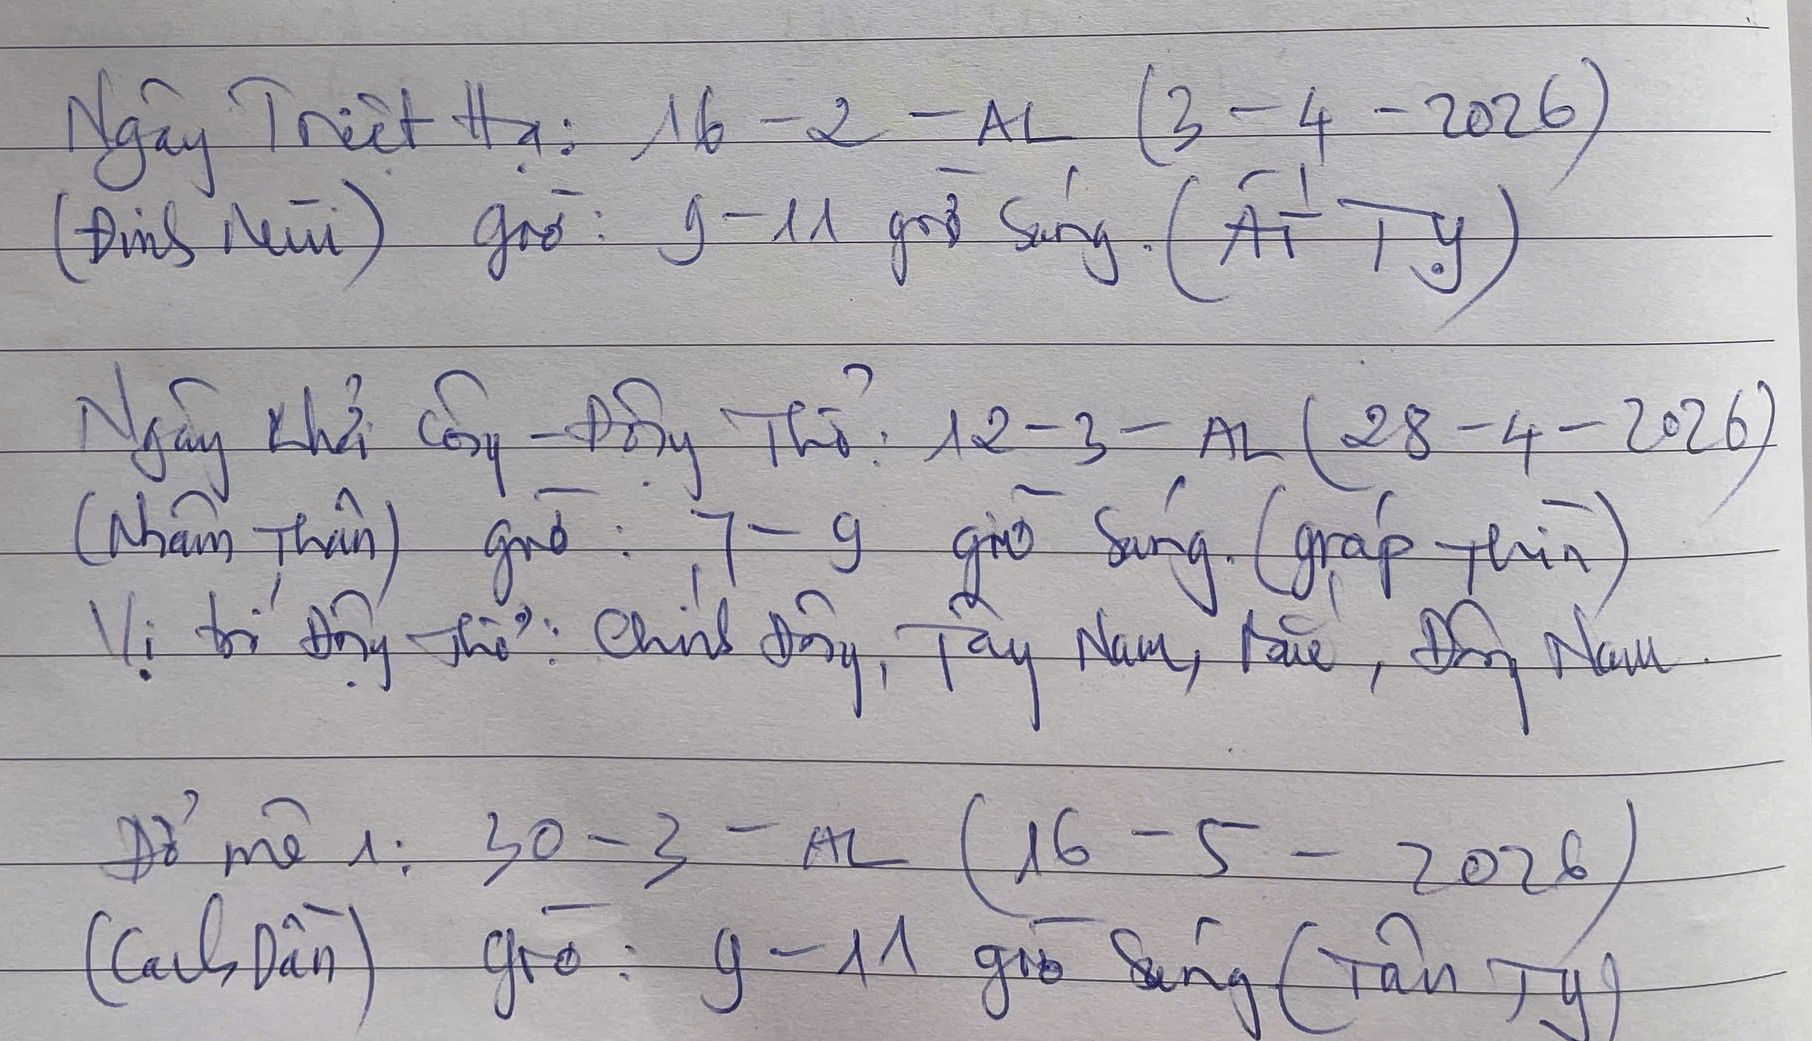 Ngày Triệt Hạ: 16 - 2 - AL (3 - 4 - 2026)
(Đinh Mùi) giờ: 9 - 11 giờ sáng. (Ất Tỵ)
Ngày khởi công - Động Thổ: 12 - 3 - AL (28 - 4 - 2026)
(Nhâm Thân) giờ: 7 - 9 giờ sáng. (giáp thìn)
Vị trí Động thổ: Chính Đông, Tây Nam, Bắc, Đông Nam.
Đổ mê 1: 30 - 3 - AL (16 - 5 - 2026)
(Canh Dần) giờ: 9 - 11 giờ sáng (Tân Tỵ)